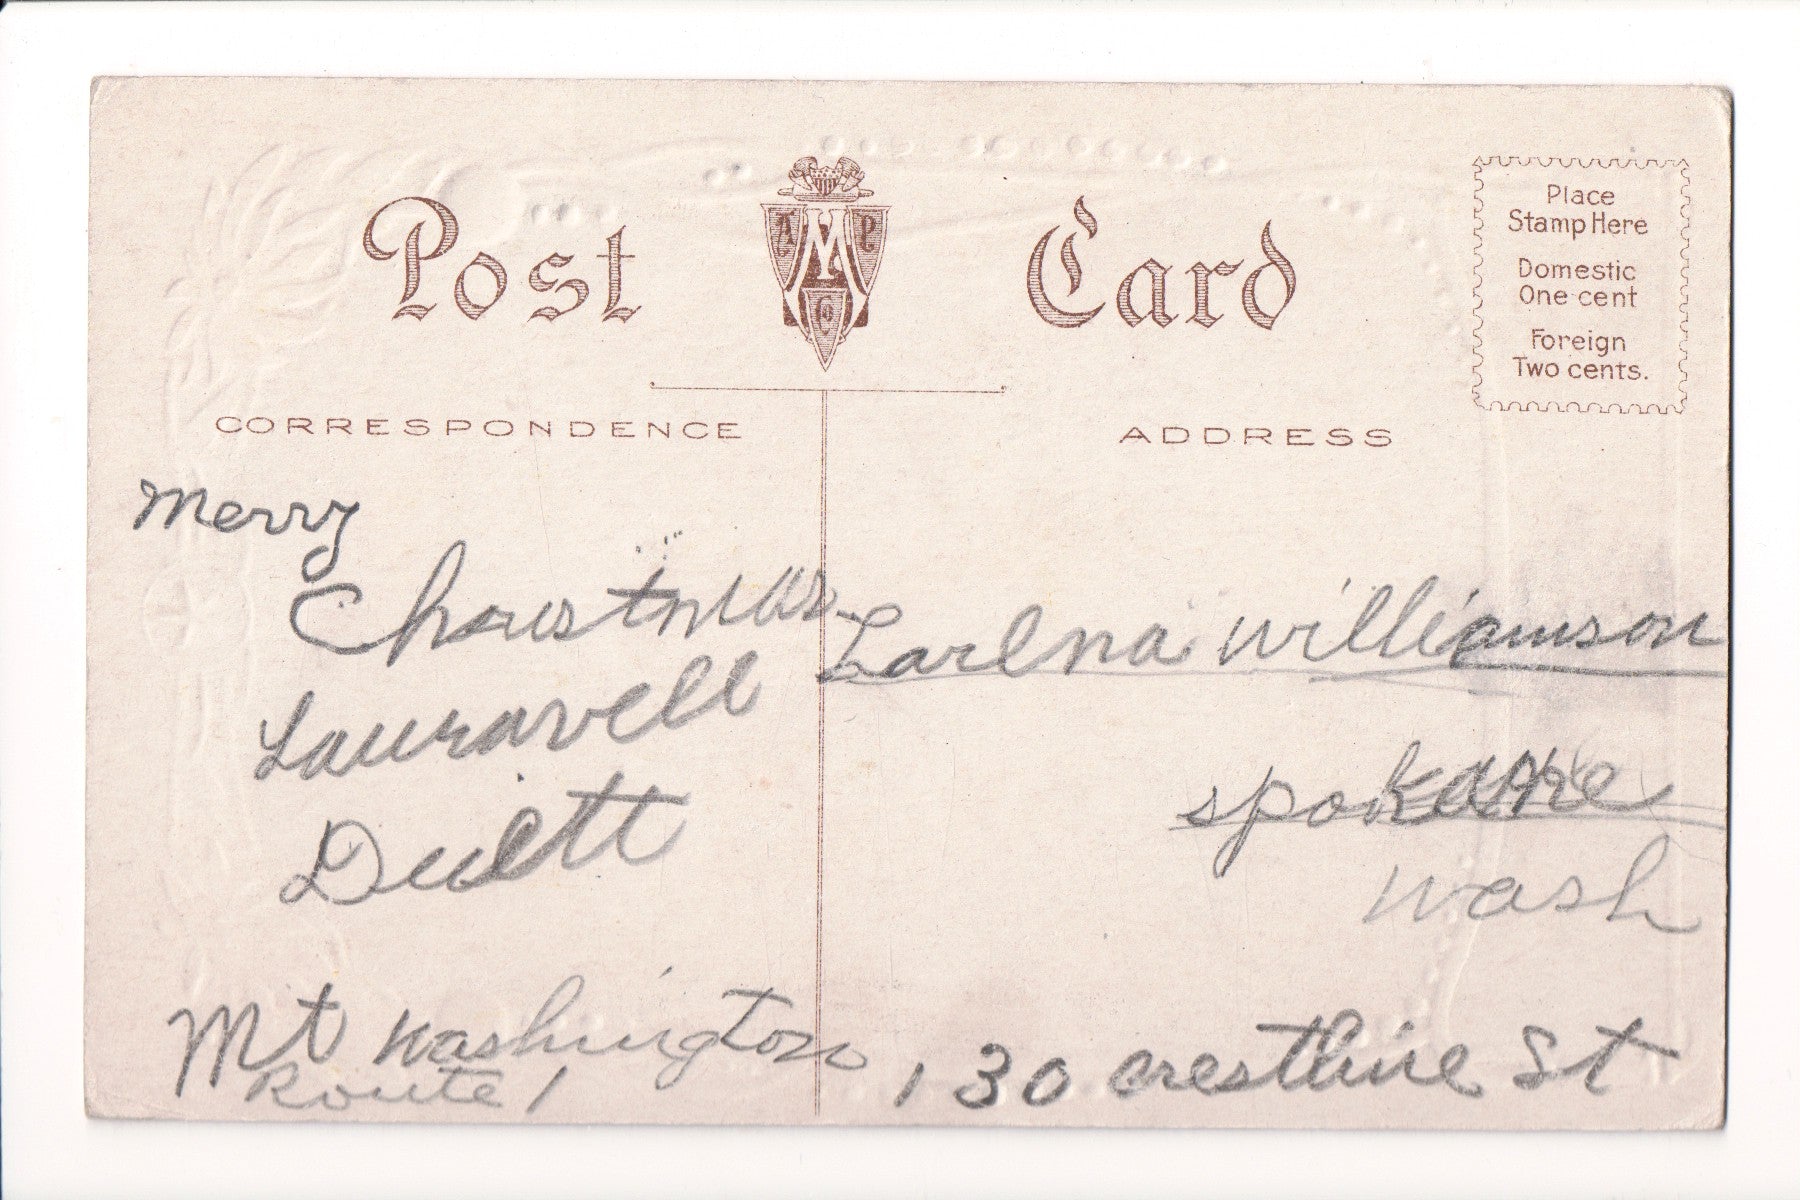 Post Card
A M P Co
Place
Stamp Here
Domestic
One cent
Foreign
Two cents.
CORRESPONDENCE
ADDRESS
Merry
Christmas
Lauravell
Duett
Mt Washington
Route 1
Larlna Williamson
spokane
wash
130 crestline St